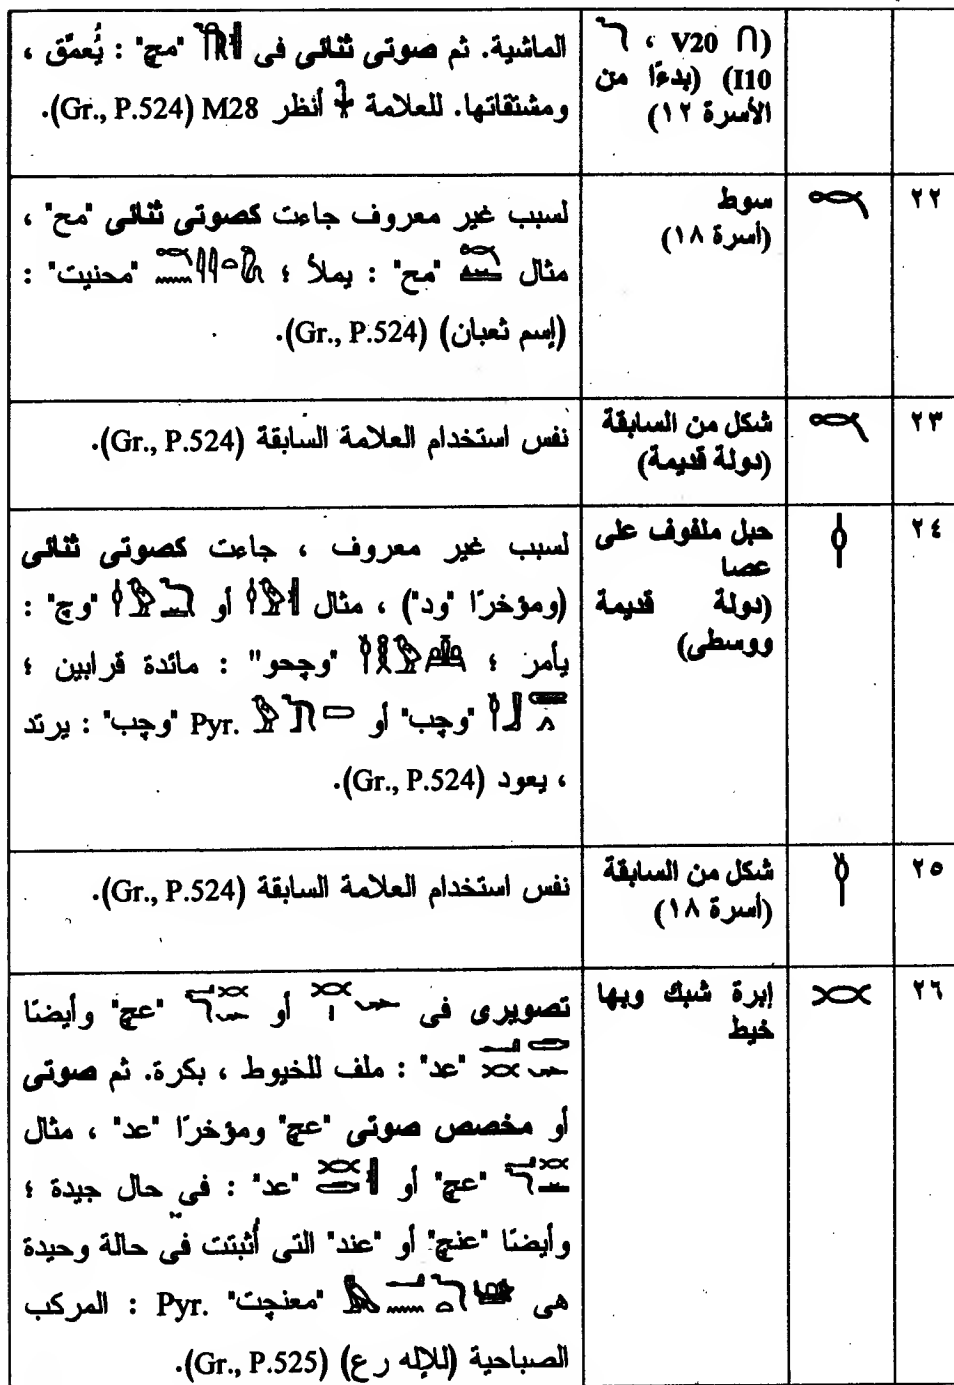 (∩ V20 ، 𓆓
I10) (بدءًا من
الأسرة ١٢)
الماشية. ثم صوتى ثنائى فى "مچ" : يُعمّق ،
ومشتقاتها. للعلامة أنظر M28 (Gr., P.524).
٢٢
سوط
(أسرة ١٨)
لسبب غير معروف جاءت كصوتى ثنائى "مح" ،
مثال "مح" : يملأ ؛ "محنيت" :
(إسم ثعبان) (Gr., P.524).
٢٣
شكل من السابقة
(دولة قديمة)
نفس استخدام العلامة السابقة (Gr., P.524).
٢٤
حبل ملفوف على
عصا
(دولة قديمة
ووسطى)
لسبب غير معروف ، جاءت كصوتى ثنائى
(ومؤخرًا "ود") ، مثال أو "وچ" :
يأمر ؛ "وچحو" : مائدة قرابين ؛
"وچب" أو Pyr. "وچب" : يرتد
، يعود (Gr., P.524).
٢٥
شكل من السابقة
(أسرة ١٨)
نفس استخدام العلامة السابقة (Gr., P.524).
٢٦
إبرة شبك وبها
خيط
تصويرى فى أو "عچ" وأيضنا
"عد" : ملف للخيوط ، بكرة. ثم صوتى
أو مخصص صوتى "عچ" ومؤخرًا "عد" ، مثال
"عچ" أو "عد" : فى حال جيدة ؛
وأيضنا "عنچ" أو "عند" التى أُثبتت فى حالة وحيدة
هى "معنچت" Pyr. : المركب
الصباحية (للإله رع) (Gr., P.525).